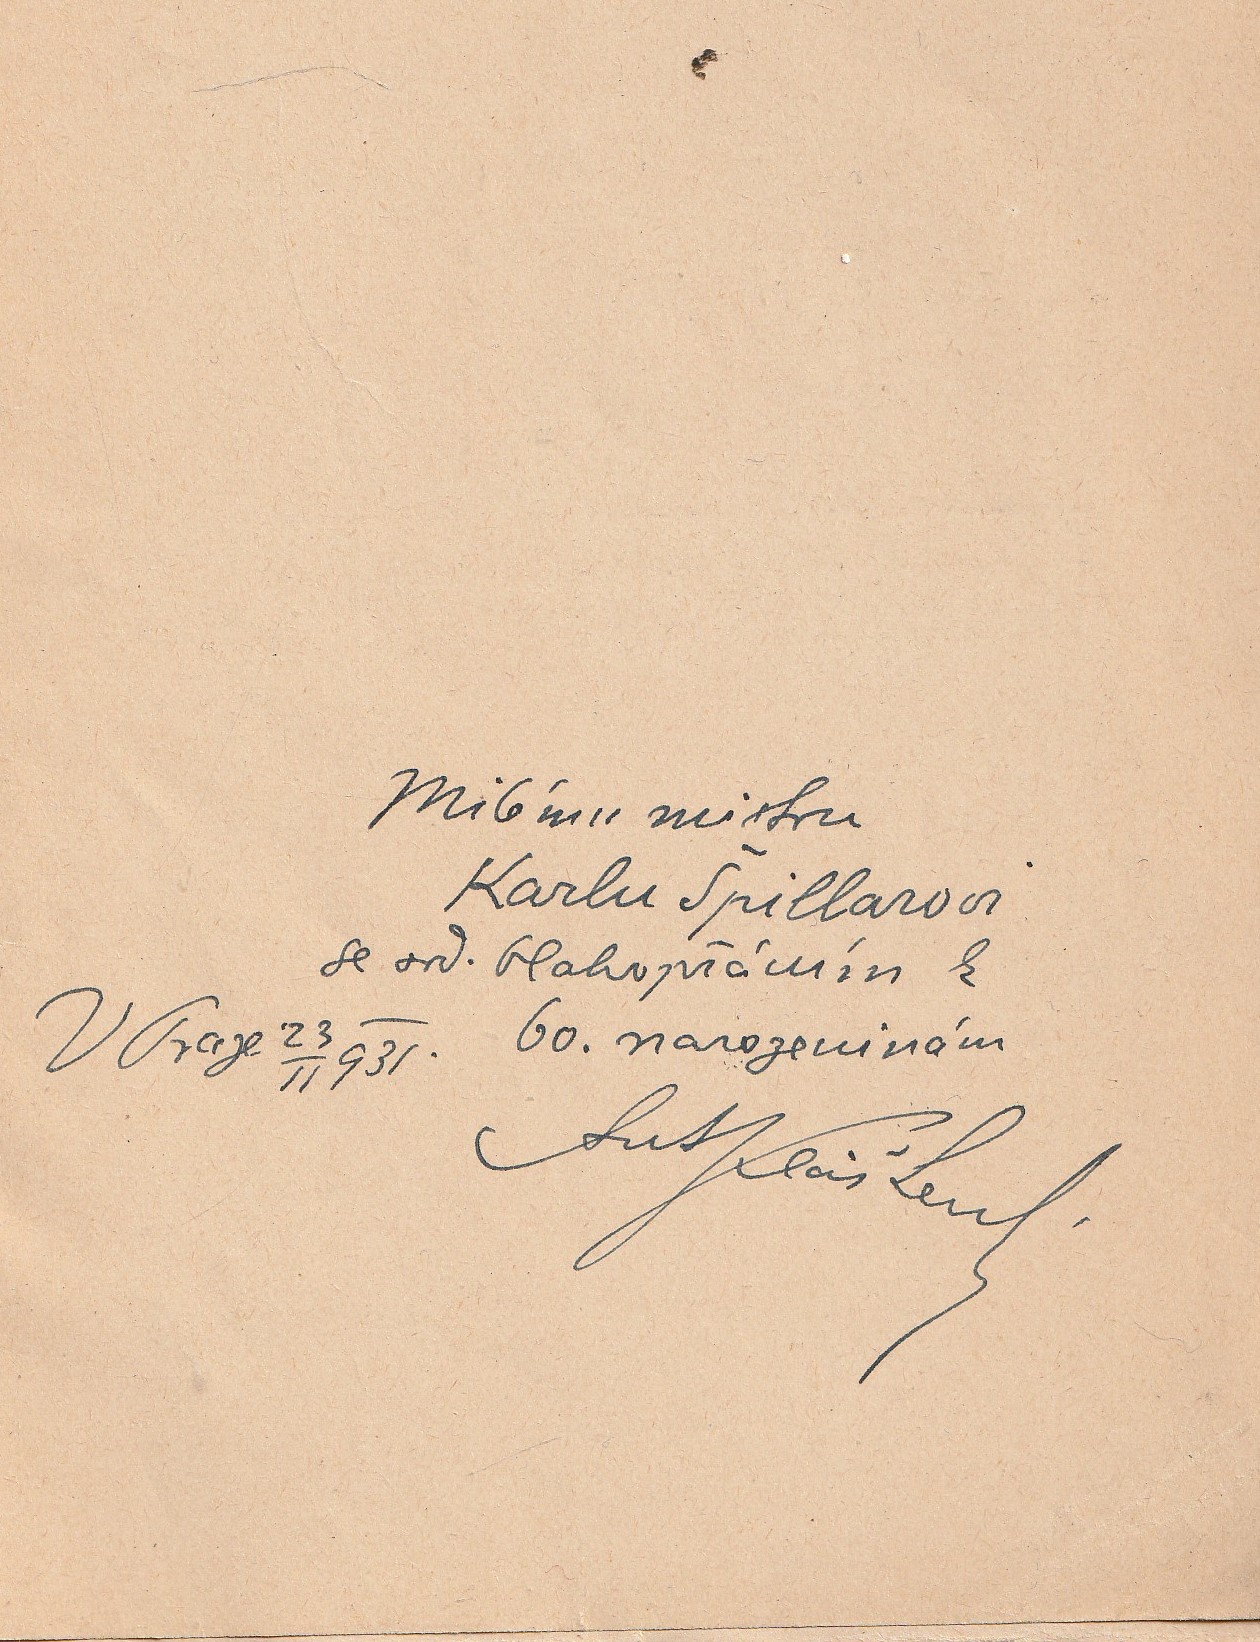 Milému mistru
Karlu Špillarovi
se srd. blahopřáním k
60. narozeninám
V Praze 23/II 931.
Ant Klášterský.